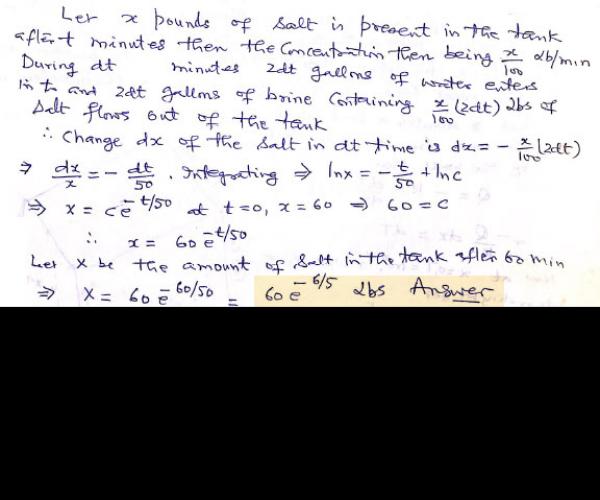 Let x pounds of salt is present in the tank
after t minutes then the concentration then being x/100 lb/min
During dt minutes 2dt gallons of water enters
in to and 2dt gallons of brine containing x/100 (2dt) lbs of
Salt flows out of the tank
∴ Change dx of the salt in dt time is dx = - x/100 (2dt)
⇒ dx/x = - dt/50 . Integrating ⇒ lnx = - t/50 + lnc
⇒ x = c e^-t/50 at t=0, x=60 ⇒ 60=c
∴ x = 60 e^-t/50
Let X be the amount of salt in the tank after 60 min
⇒ X = 60 e^-60/50 = 60 e^-6/5 lbs Answer